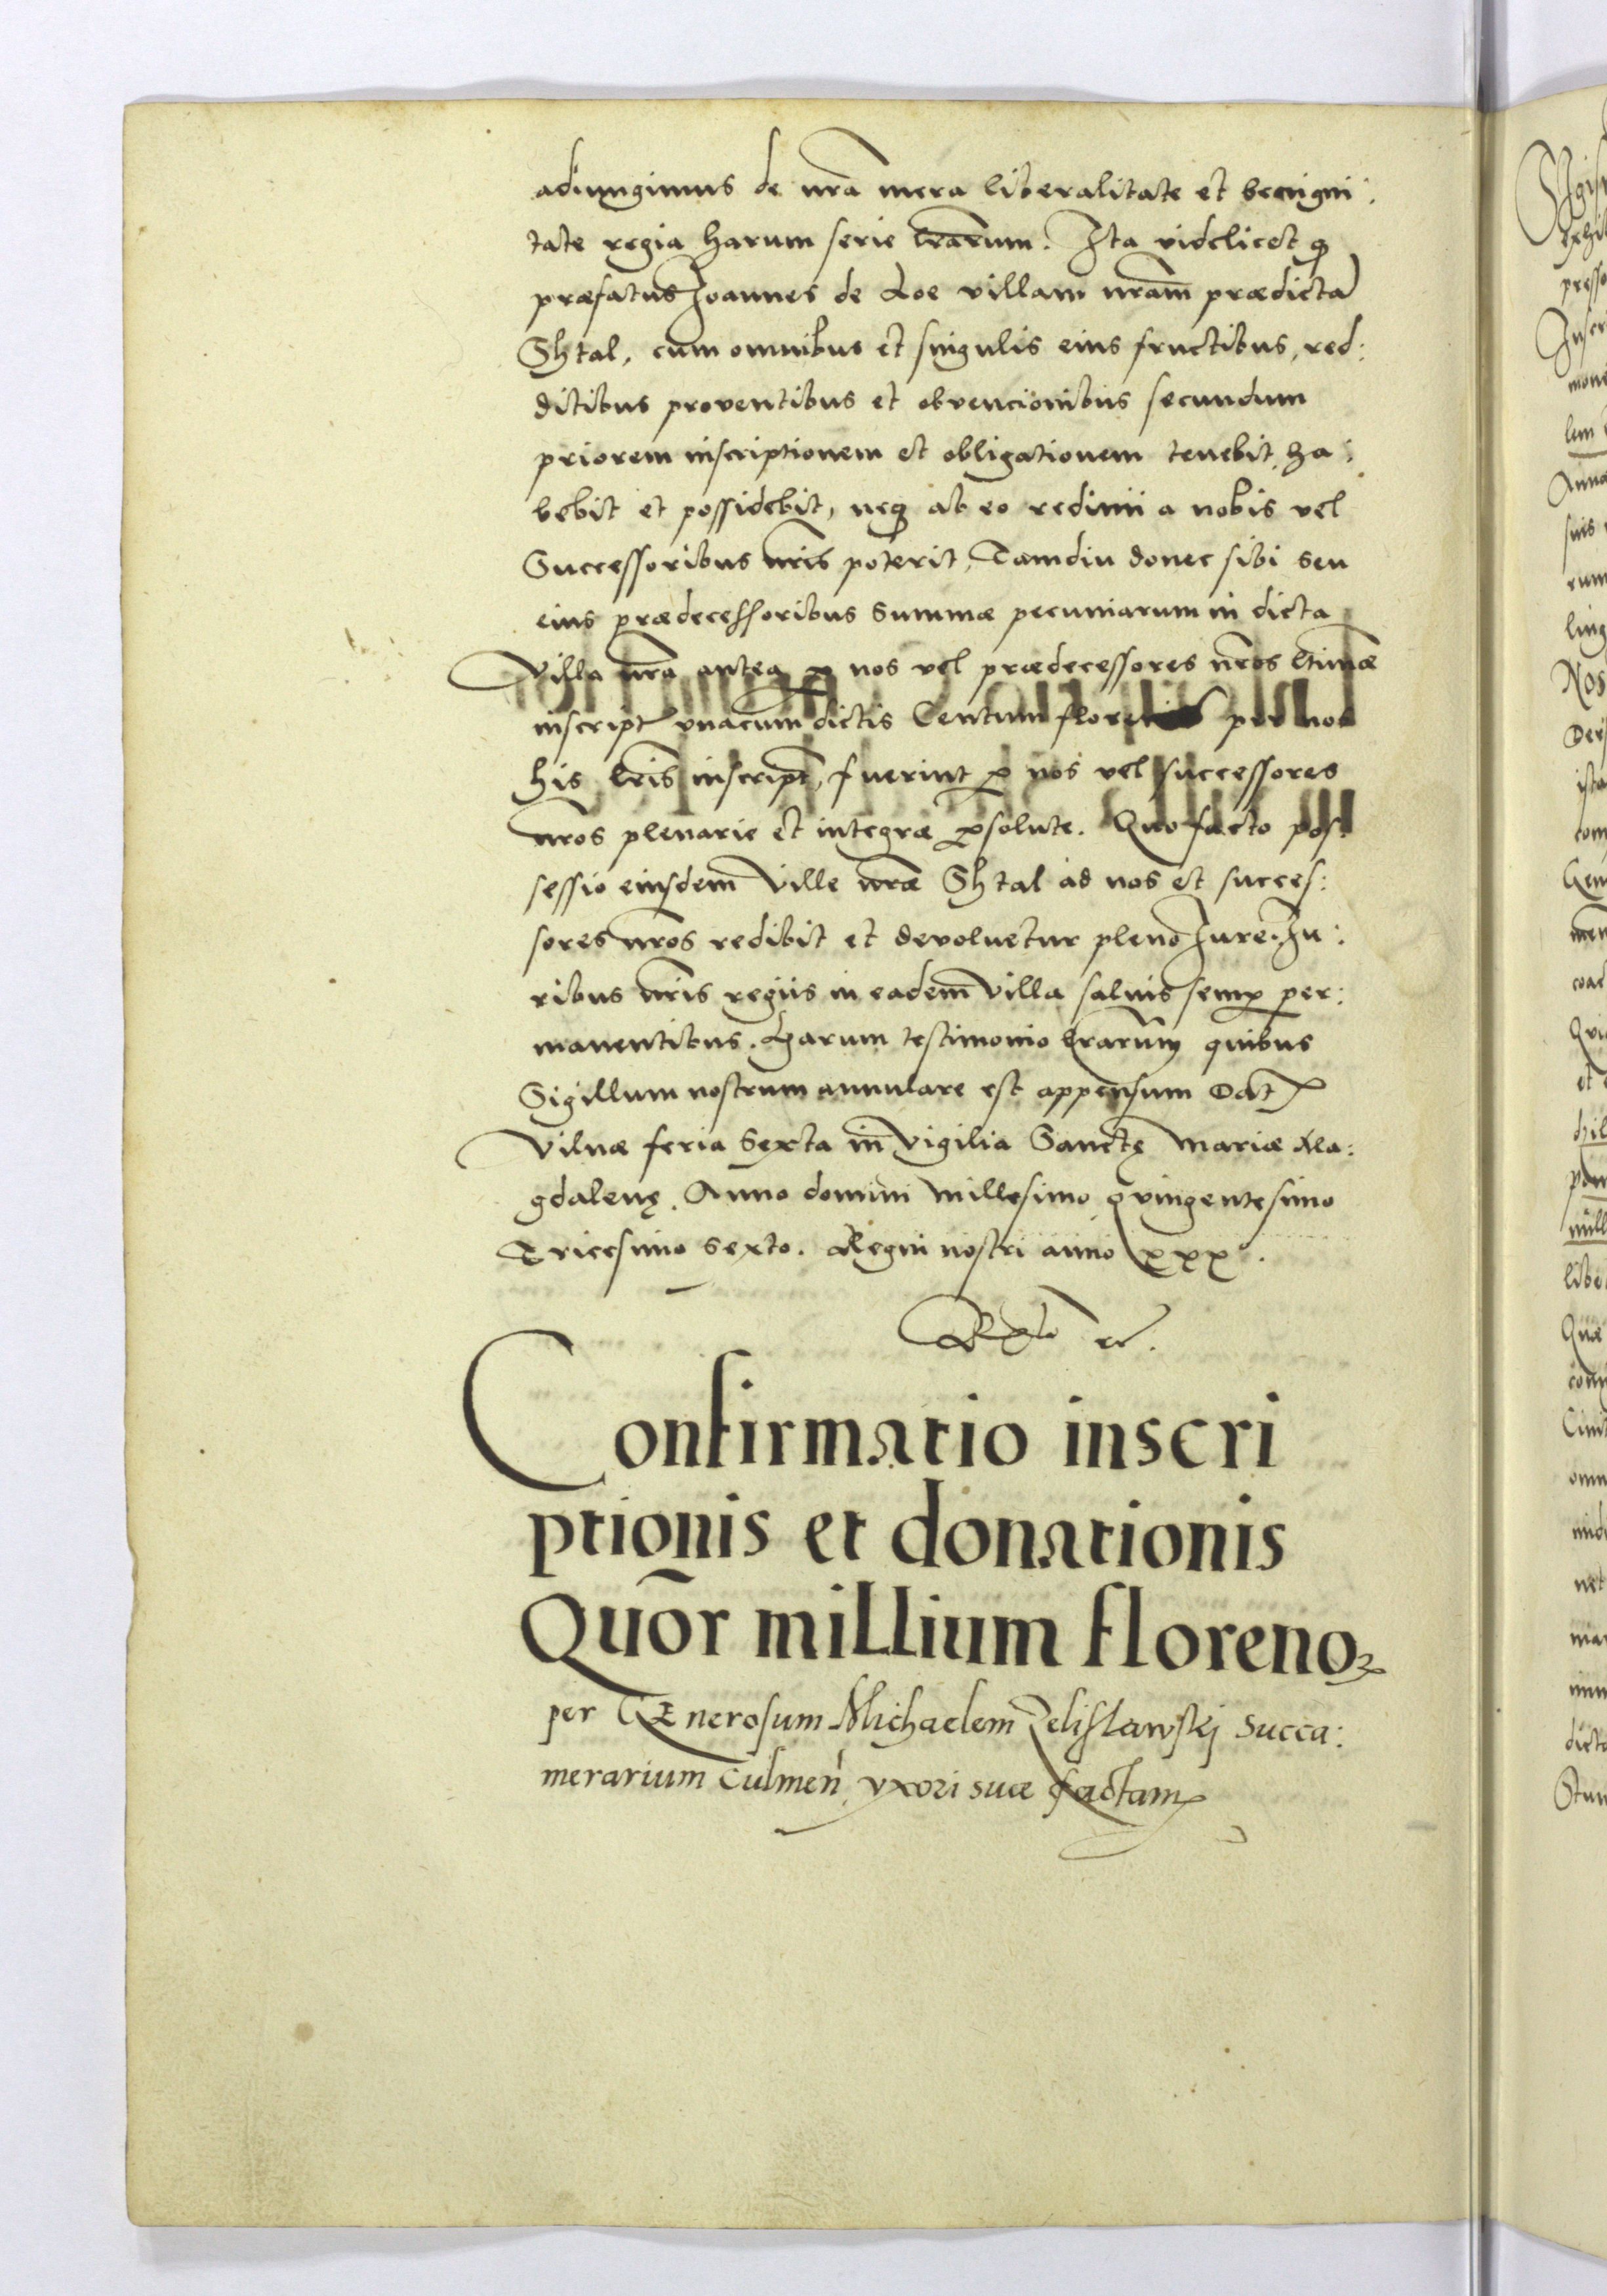 adiungimus de nrã mera liberalitate et benigni:
tate regia harum serie lrãrum. Ita videlicet q
præfatus Joannes de Loe villam nrãm prædictã
Shtal, cum omnibus et singulis eius fructibus, red:
ditibus proventibus et obvencionibus secundum
priorem inscriptionem et obligationem tenebit, ha:
bebit et possidebit, neq ab eo redimi a nobis vel
Successoribus nrĩs poterit, Tamdiu donec sibi seu
eius prædecessoribus Summæ pecuniarum in dicta
Villa nrã antea p nos vel prædecessores nrõs ltimæ
inscript vnacum dictis Centum florenis per nos
his lrĩs inscript, fuerint p nos vel successores
nrõs plenarie et integræ psolute. Quo facto pos:
sessio eiusdem Ville nræ Shtal ad nos et succes:
sores nrõs redibit et devoluetur pleno Jure. Ju:
ribus nrĩs regiis in eadem Villa saluis semp per:
manentibus. Harum testimonio lrãrum quibus
Sigillum nostrum annulare est appensum Dat
Vilnæ feria Sexta in Vigilia Sanctę Mariæ Ma:
gdalenę. Anno domini Millesimo quingentesimo
Tricesimo Sexto. Regni nostri anno xxx°.
Confirmatio inscri
ptionis et donationis
Quor̃ millium floreno
per GEnerosum Michaelem Zelislawskj Succa:
merarium Culmen̄ vxori suæ factam